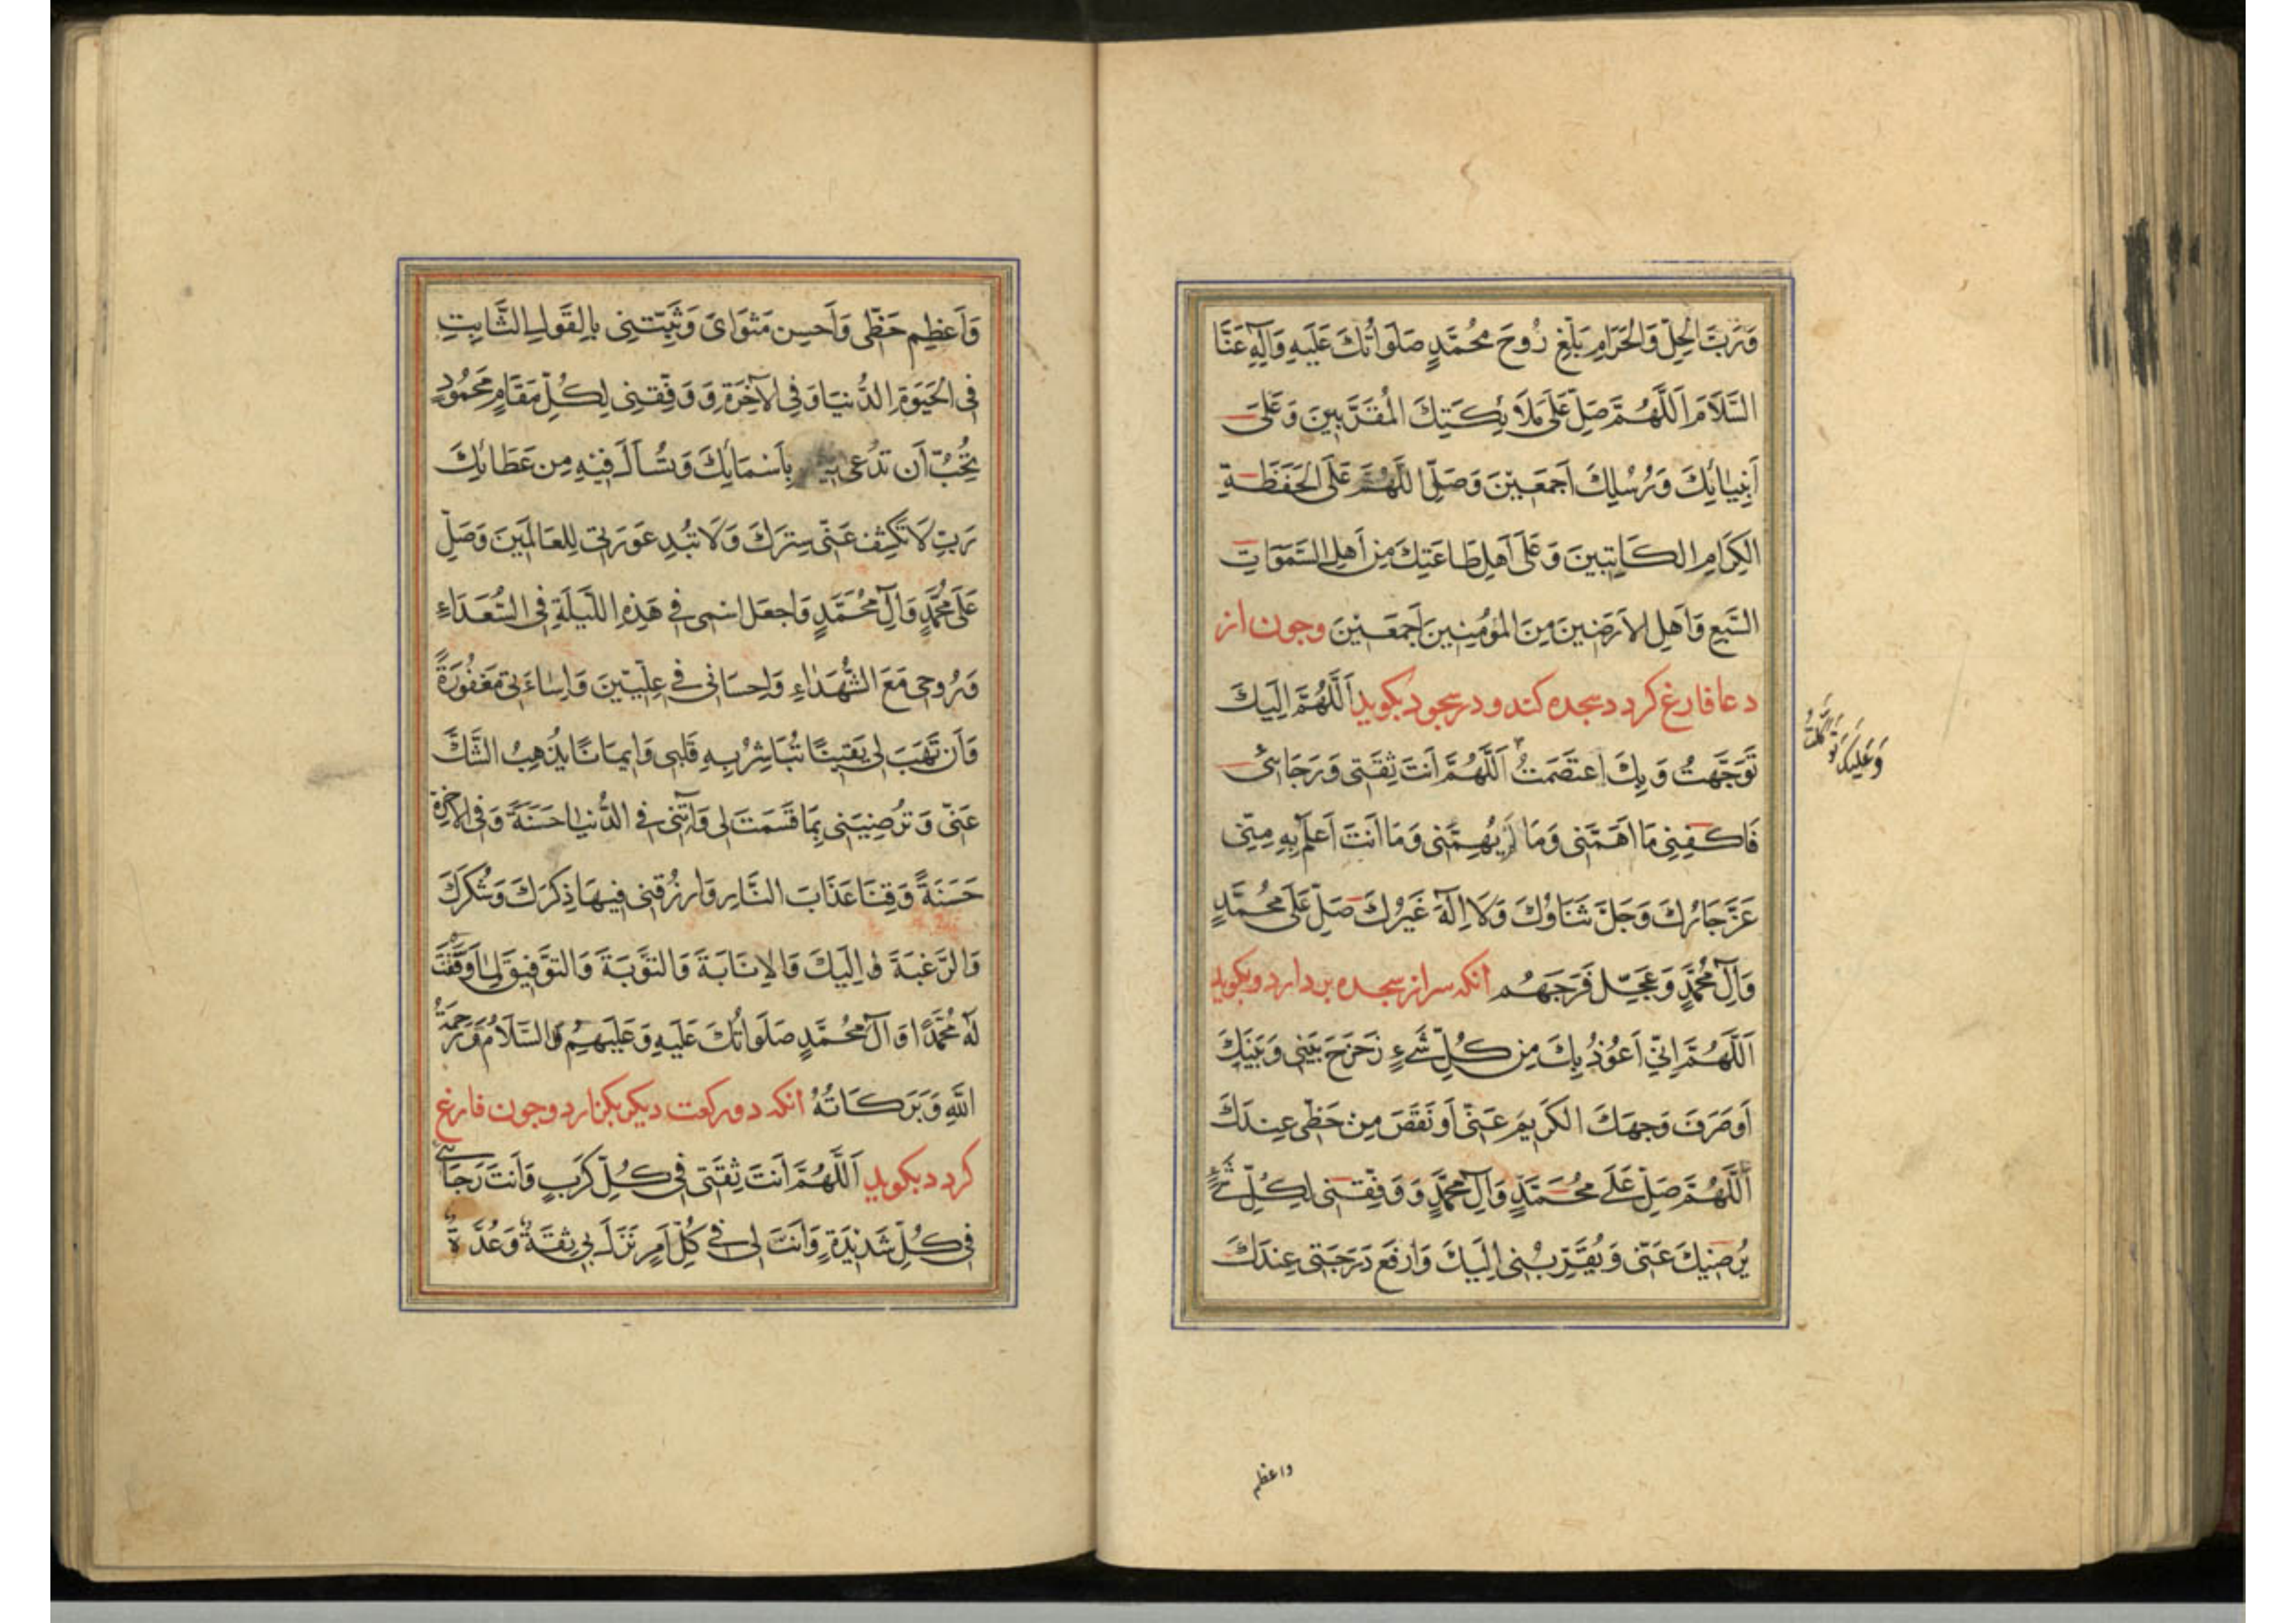 وَرَبَّ الْحِلِّ وَالْحَرَامِ بَلِّغْ رُوحَ مُحَمَّدٍ صَلَوَاتُكَ عَلَيْهِ وَآلِهِ عَنَّا
السَّلَامَ اَللَّهُمَّ صَلِّ عَلَى مَلَائِكَتِكَ الْمُقَرَّبِينَ وَعَلَى
أَنْبِيَائِكَ وَرُسُلِكَ أَجْمَعِينَ وَصَلِّ اللَّهُمَّ عَلَى الْحَفَظَةِ
الْكِرَامِ الْكَاتِبِينَ وَعَلَى أَهْلِ طَاعَتِكَ مِنْ أَهْلِ السَّمَوَاتِ
السَّبْعِ وَأَهْلِ الْأَرَضِينَ مِنَ الْمُؤْمِنِينَ أَجْمَعِينَ وجون از
دعا فارغ كردد سجده كند و در سجود بكويد اَللَّهُمَّ إِلَيْكَ
تَوَجَّهْتُ وَبِكَ اعْتَصَمْتُ اَللَّهُمَّ أَنْتَ ثِقَتِي وَرَجَائِي
وَعَلَيْكَ تَوَكَّلْتُ
فَاكْفِنِي مَا أَهَمَّنِي وَمَا لَمْ يُهِمَّنِي وَمَا أَنْتَ أَعْلَمُ بِهِ مِنِّي
عَزَّ جَارُكَ وَجَلَّ ثَنَاؤُكَ وَلَا إِلَهَ غَيْرُكَ صَلِّ عَلَى مُحَمَّدٍ
وَآلِ مُحَمَّدٍ وَعَجِّلْ فَرَجَهُمْ انكه سر از سجده بردارد و بكويد
اَللَّهُمَّ إِنِّي أَعُوذُ بِكَ مِنْ كُلِّ شَيْءٍ زَحْزَحَ بَيْنِي وَبَيْنَكَ
أَوْ صَرَفَ وَجْهَكَ الْكَرِيمَ عَنِّي أَوْ نَقَصَ مِنْ حَظِّي عِنْدَكَ
اَللَّهُمَّ صَلِّ عَلَى مُحَمَّدٍ وَآلِ مُحَمَّدٍ وَوَفِّقْنِي لِكُلِّ شَيْءٍ
يُرْضِيكَ عَنِّي وَيُقَرِّبُنِي إِلَيْكَ وَارْفَعْ دَرَجَتِي عِنْدَكَ
واعظم
وَأَعْظِمْ حَظِّي وَأَحْسِنْ مَثْوَايَ وَثَبِّتْنِي بِالْقَوْلِ الثَّابِتِ
فِي الْحَيَوةِ الدُّنْيَا وَفِي الْآخِرَةِ وَوَفِّقْنِي لِكُلِّ مَقَامٍ مَحْمُودٍ
تُحِبُّ أَنْ تُدْعَى بِأَسْمَائِكَ وَتُسْأَلَ فِيهِ مِنْ عَطَائِكَ
رَبِّ لَا تَكْشِفْ عَنِّي سِتْرَكَ وَلَا تُبْدِ عَوْرَتِي لِلْعَالَمِينَ وَصَلِّ
عَلَى مُحَمَّدٍ وَآلِ مُحَمَّدٍ وَاجْعَلِ اسْمِي فِي هَذِهِ اللَّيْلَةِ فِي السُّعَدَاءِ
وَرُوحِي مَعَ الشُّهَدَاءِ وَإِحْسَانِي فِي عِلِّيِّينَ وَإِسَاءَتِي مَغْفُورَةً
وَأَنْ تَهَبَ لِي يَقِينًا تُبَاشِرُ بِهِ قَلْبِي وَإِيمَانًا يُذْهِبُ الشَّكَّ
عَنِّي وَتُرْضِيَنِي بِمَا قَسَمْتَ لِي وَآتِنِي فِي الدُّنْيَا حَسَنَةً وَفِي الْآخِرَةِ
حَسَنَةً وَقِنَا عَذَابَ النَّارِ وَارْزُقْنِي فِيهَا ذِكْرَكَ وَشُكْرَكَ
وَالرَّغْبَةَ إِلَيْكَ وَالْإِنَابَةَ وَالتَّوْبَةَ وَالتَّوْفِيقَ لِمَا وَفَّقْتَ
لَهُ مُحَمَّدًا وَآلَ مُحَمَّدٍ صَلَوَاتُكَ عَلَيْهِ وَعَلَيْهِمْ وَالسَّلَامُ وَرَحْمَةُ
اللَّهِ وَبَرَكَاتُهُ انكه دو ركعت ديكر بكزارد و جون فارغ
كردد بكويد اَللَّهُمَّ أَنْتَ ثِقَتِي فِي كُلِّ كَرْبٍ وَأَنْتَ رَجَائِي
فِي كُلِّ شَدِيدَةٍ وَأَنْتَ لِي فِي كُلِّ أَمْرٍ نَزَلَ بِي ثِقَةٌ وَعُدَّةٌ